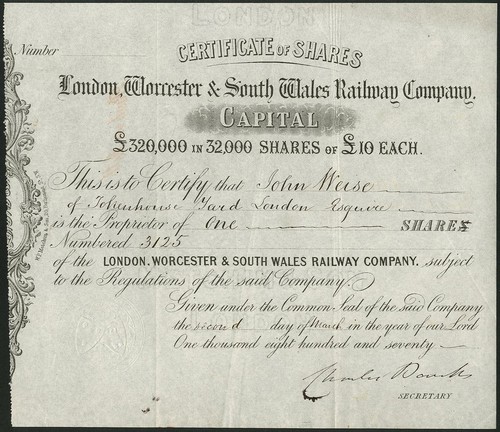 LONDON
Number
CERTIFICATE OF SHARES
London, Worcester & South Wales Railway Company.
CAPITAL
£320,000 IN 32,000 SHARES OF £10 EACH.
This is to Certify that John Weise
of Tokenhouse Yard London Esquire
is the Proprietor of One SHARES
Numbered 3125
of the LONDON, WORCESTER & SOUTH WALES RAILWAY COMPANY. subject
to the Regulations of the said Company.
Given under the Common Seal of the said Company
the second day of March in the year of our Lord
One thousand eight hundred and seventy
Charles
SECRETARY